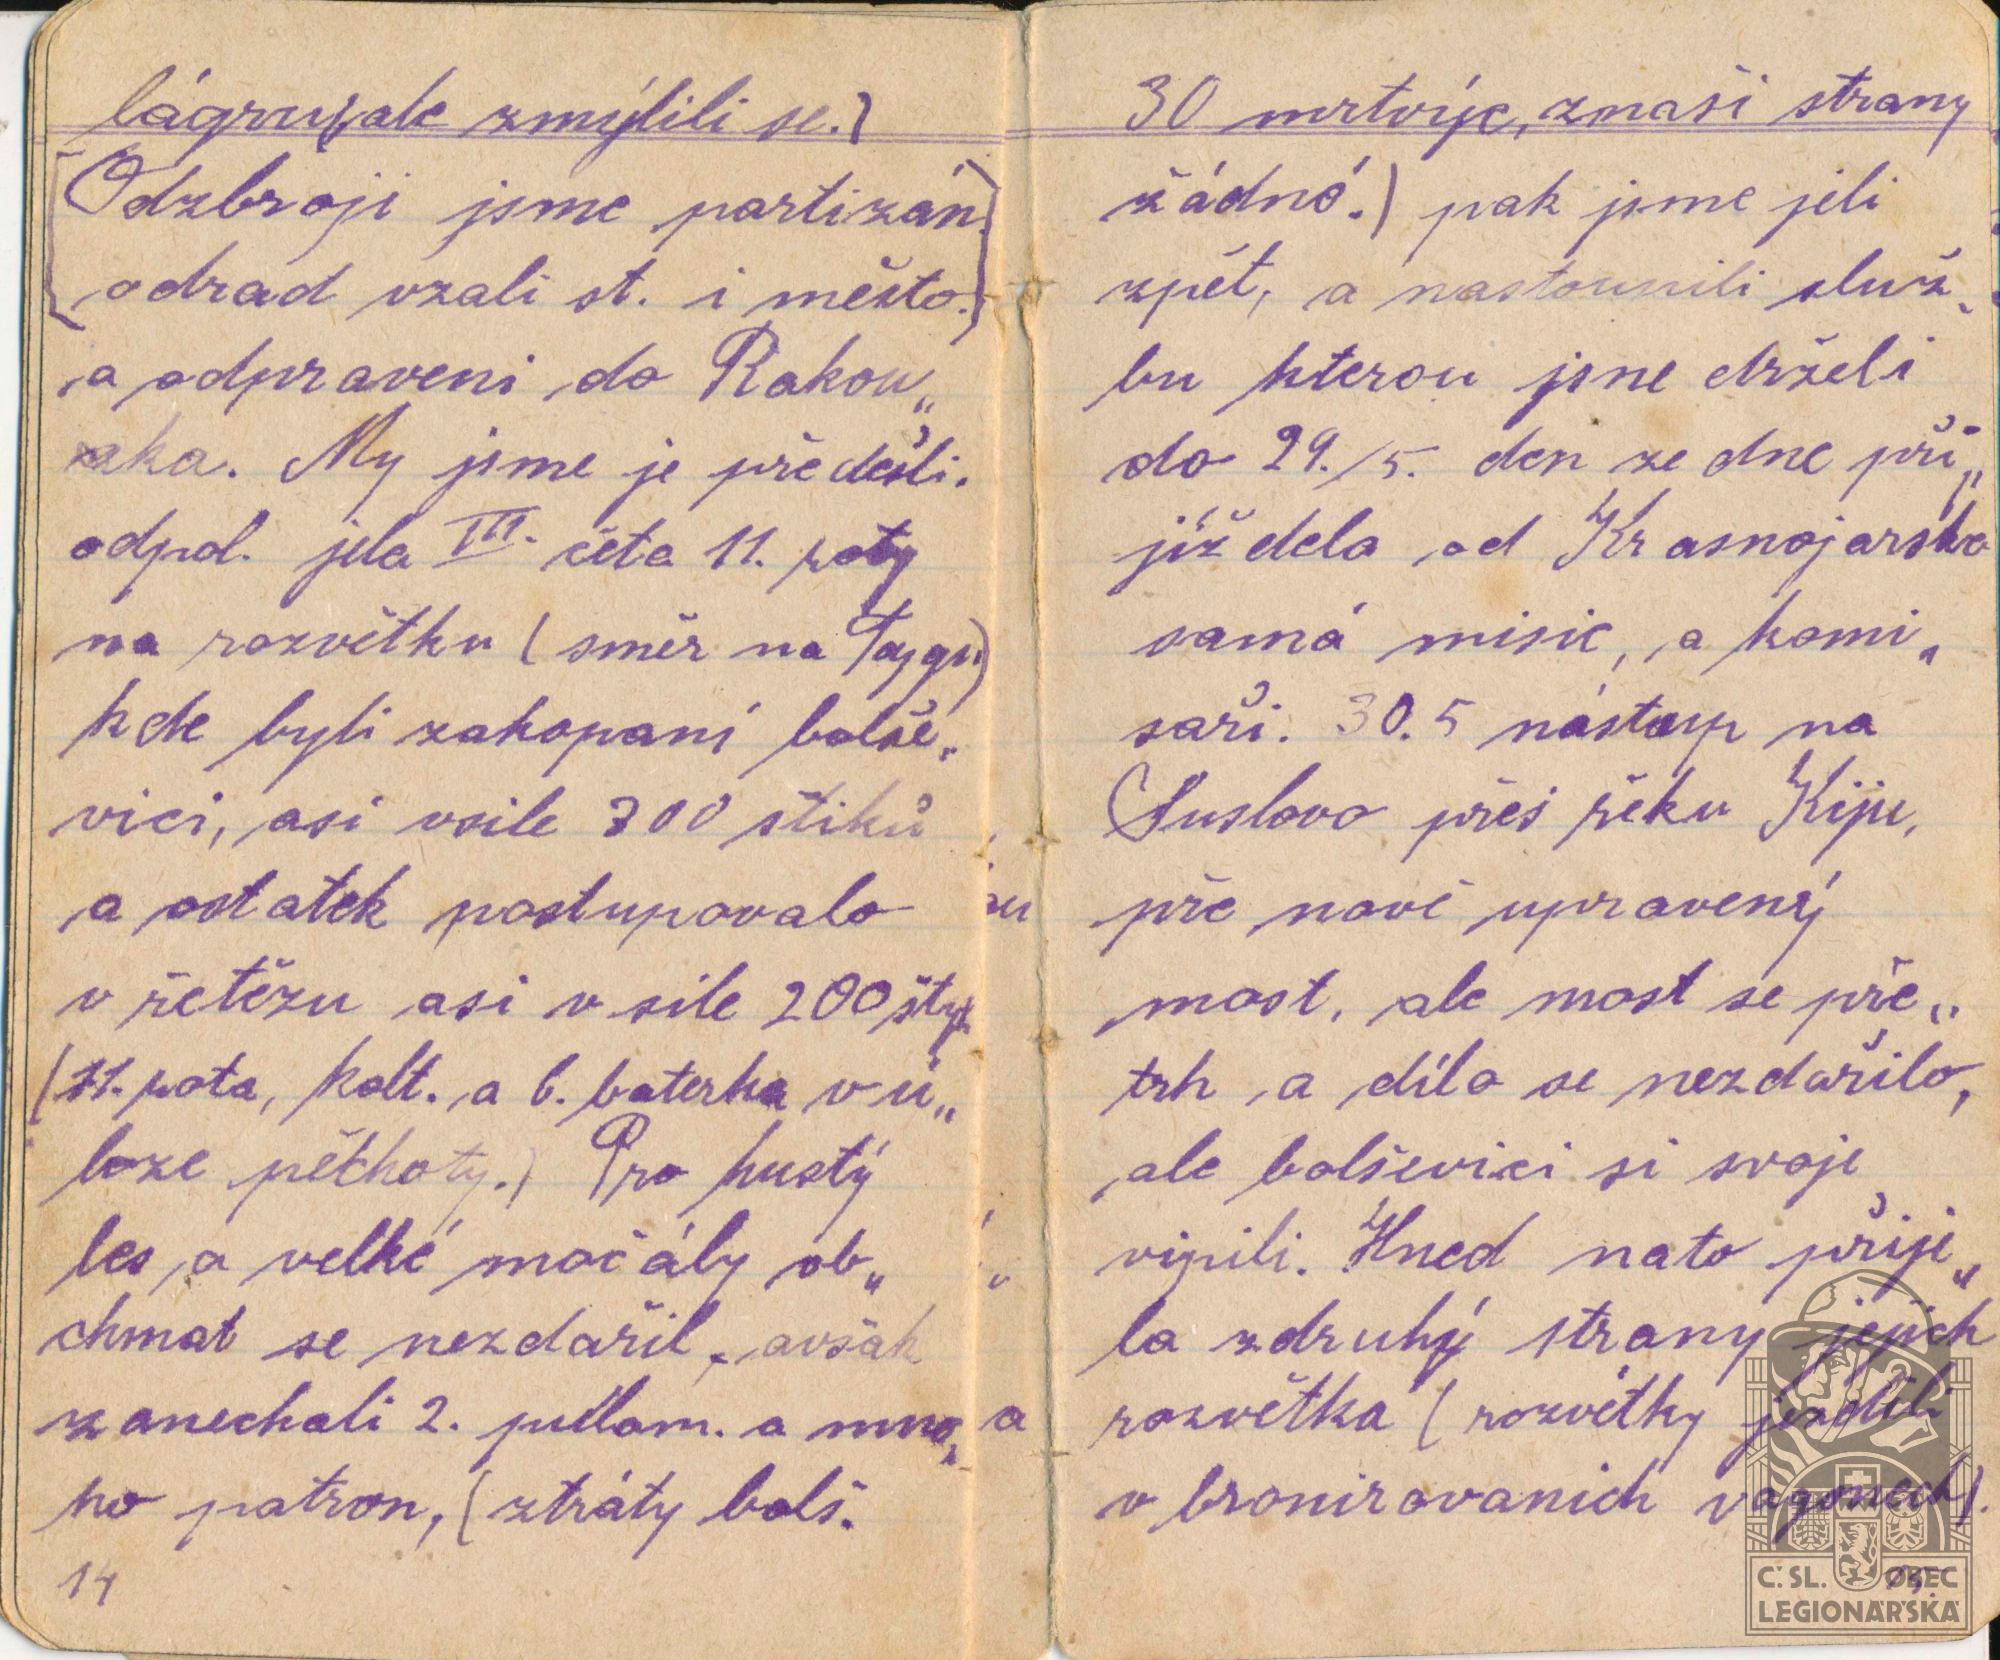 lágru, ale zmýlili se.)
Odzbroji jsme partizán.
odrad vzali st. i město.)
a odpraveni do Rakou„
zka. My jsme je předešli.
odpol. jela III. četa 11. roty
na rozvětku (směr na Tajgu)
kde byli zakopaní bolše„
vici, asi vsile 300 štiků
a ostatek postupovalo
v řetězu asi v sile 200 štyk
(11. rota, kolt. a b. baterka v ú„
loze pěchoty.) Pro hustý
les a velké močály ob„
chmat se nezdařil, avšak
zanechali 2. pullom. a mno„
ho patron, (ztráty bolš.
14
30 mrtvýc, znaši strany
žádné.) pak jsme jeli
zpět, a nastounili služ„
bu kterou jsne drželi
do 29./5. den ze dne při„
jížděla od Krasnojarska
samá misie, a komi„
saři. 30.5 nástup na
Suslovo přes řeku Kiju,
pře nově upravený
most, ale most se pře„
trh a dílo se nezdařilo,
ale bolševici si svoje
vipili. Hned nato přije„
la zdruhý strany jejich
rozvětka (rozvětky jezdili
v bronirovanich vagonech).
15.
Č. SL. OBEC
LEGIONÁŘSKÁ